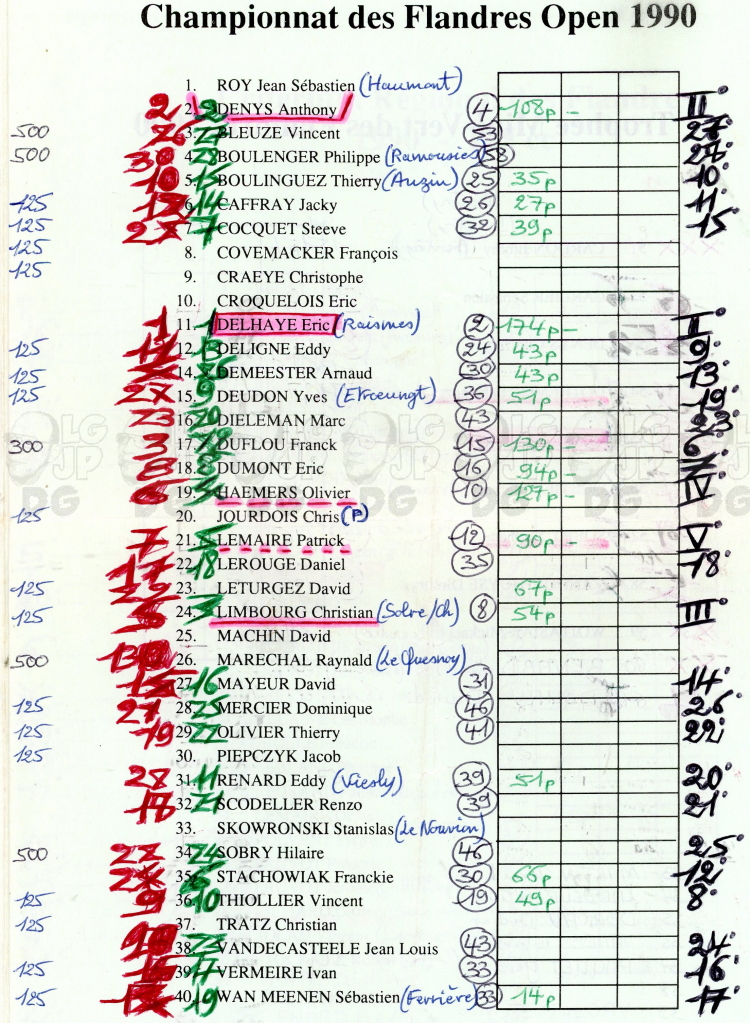 Championnat des Flandres Open 1990
1. ROY Jean Sébastien (Haumont)
2 2. 2 DENYS Anthony 4 108p - II°
500 3. BLEUZE Vincent 53 27°
500 30 4. 28 BOULENGER Philippe (Ramousies) 58
10 5. 15 BOULINGUEZ Thierry (Anzin) 25 35p 10°
125 6. 14 CAFFRAY Jacky 26 27p 11°
125 7. 7 COCQUET Steeve 32 39p 15°
125 8. COVEMACKER François
125 9. CRAEYE Christophe
10. CROQUELOIS Eric
1 11. 1 DELHAYE Eric (Raismes) 2 174p - I°
125 12. 13 DELIGNE Eddy 24 43p 9°
125 14. DEMEESTER Arnaud 30 43p 13°
125 15. 9 DEUDON Yves (Etroeungt) 36 51p 19°
23 16. 20 DIELEMAN Marc 43 23°
300 3 17. DUFLOU Franck 15 130p - 6°
8 18. DUMONT Eric 16 94p -
6 19. HAEMERS Olivier 10 127p - IV°
125 20. JOURDOIS Chris (P)
7 21. LEMAIRE Patrick 12 90p - V°
17 22. 18 LEROUGE Daniel 35 18°
125 23. LETURGEZ David 67p
125 24. LIMBOURG Christian (Solre/Ch) 8 54p III°
25. MACHIN David
500 26. MARECHAL Raynald (Le Quesnoy)
27. 16 MAYEUR David 31 14°
125 27 28. 23 MERCIER Dominique 46 26°
125 19 29. 22 OLIVIER Thierry 41 22°
125 30. PIEPCZYK Jacob
28 31. 11 RENARD Eddy (Viesly) 39 51p 20°
18 32. 21 SCODELLER Renzo 39 21°
33. SKOWRONSKI Stanislas (Le Nouvion)
500 22 34. 24 SOBRY Hilaire 46 25°
35. 6 STACHOWIAK Franckie 30 66p 12°
125 9 36. 10 THIOLLIER Vincent 19 49p 8°
125 37. TRATZ Christian
38. VANDECASTEELE Jean Louis 43 24°
125 39. 17 VERMEIRE Ivan 33 16°
125 40. 19 WAN MEENEN Sébastien (Ferrière) 33 14p 17°